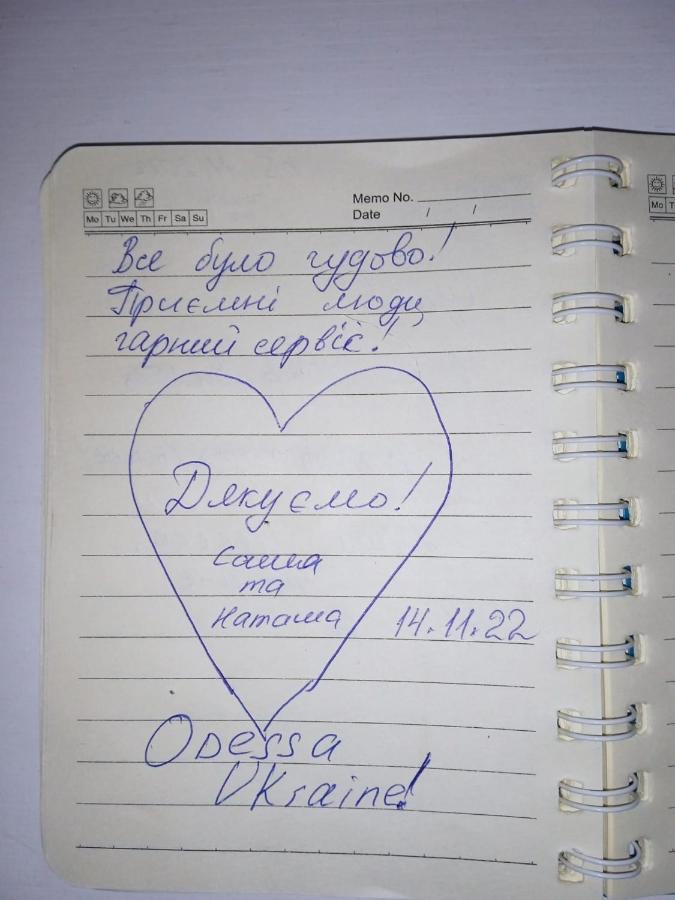 Memo No.
Mo Tu We Th Fr Sa Su
Date / /
Все було чудово!
Приємні люди,
гарний сервіс!
Дякуємо!
Саша
та
Наташа
14.11.22
Odessa
Ukraine!
Mo T